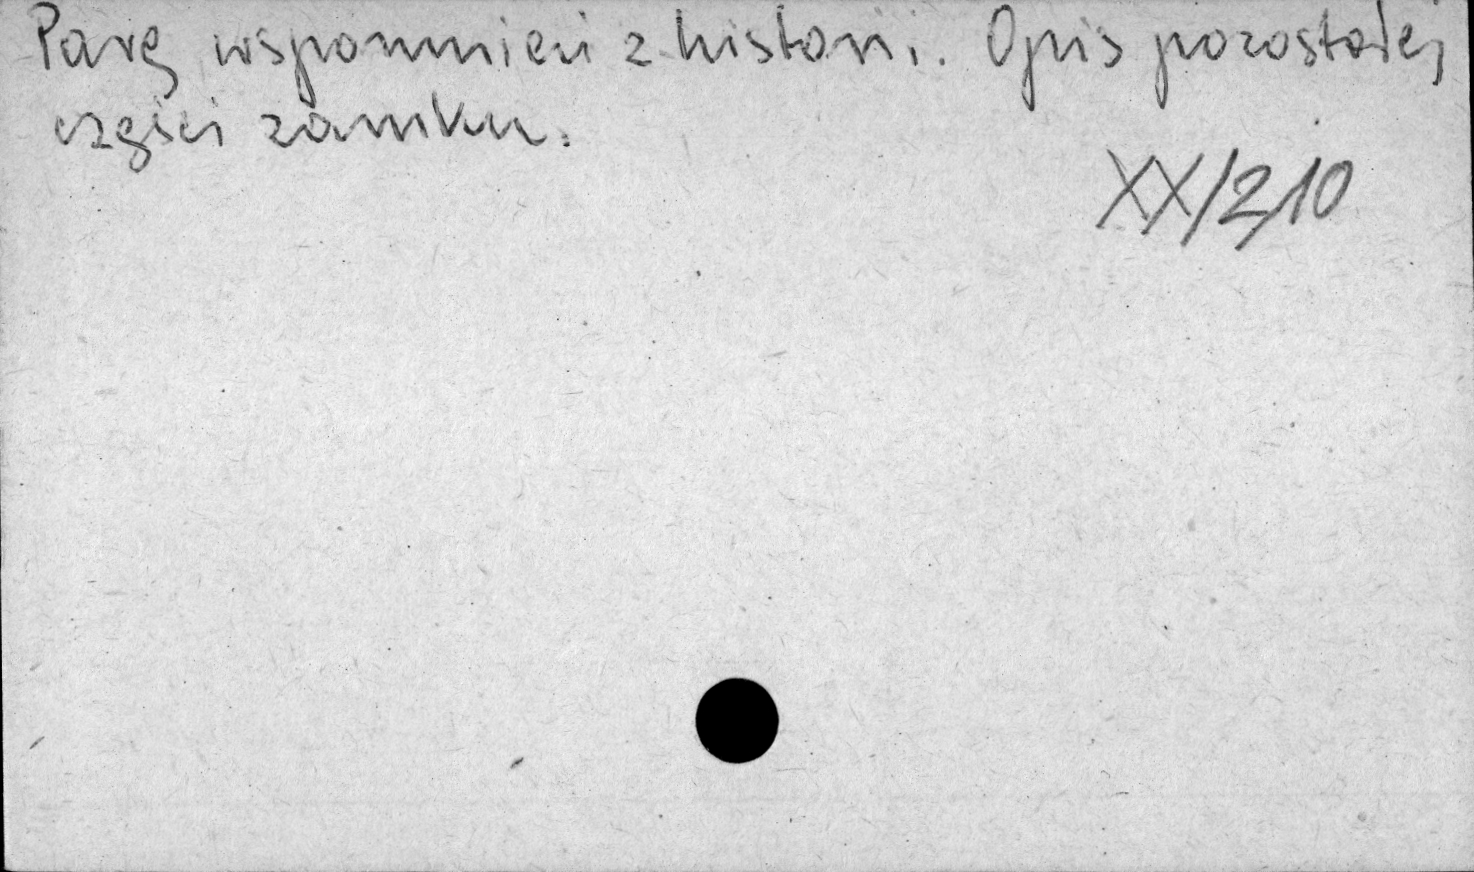 Parę wspomnień z historii. Opis pozostałej
części zamku.
XX/210